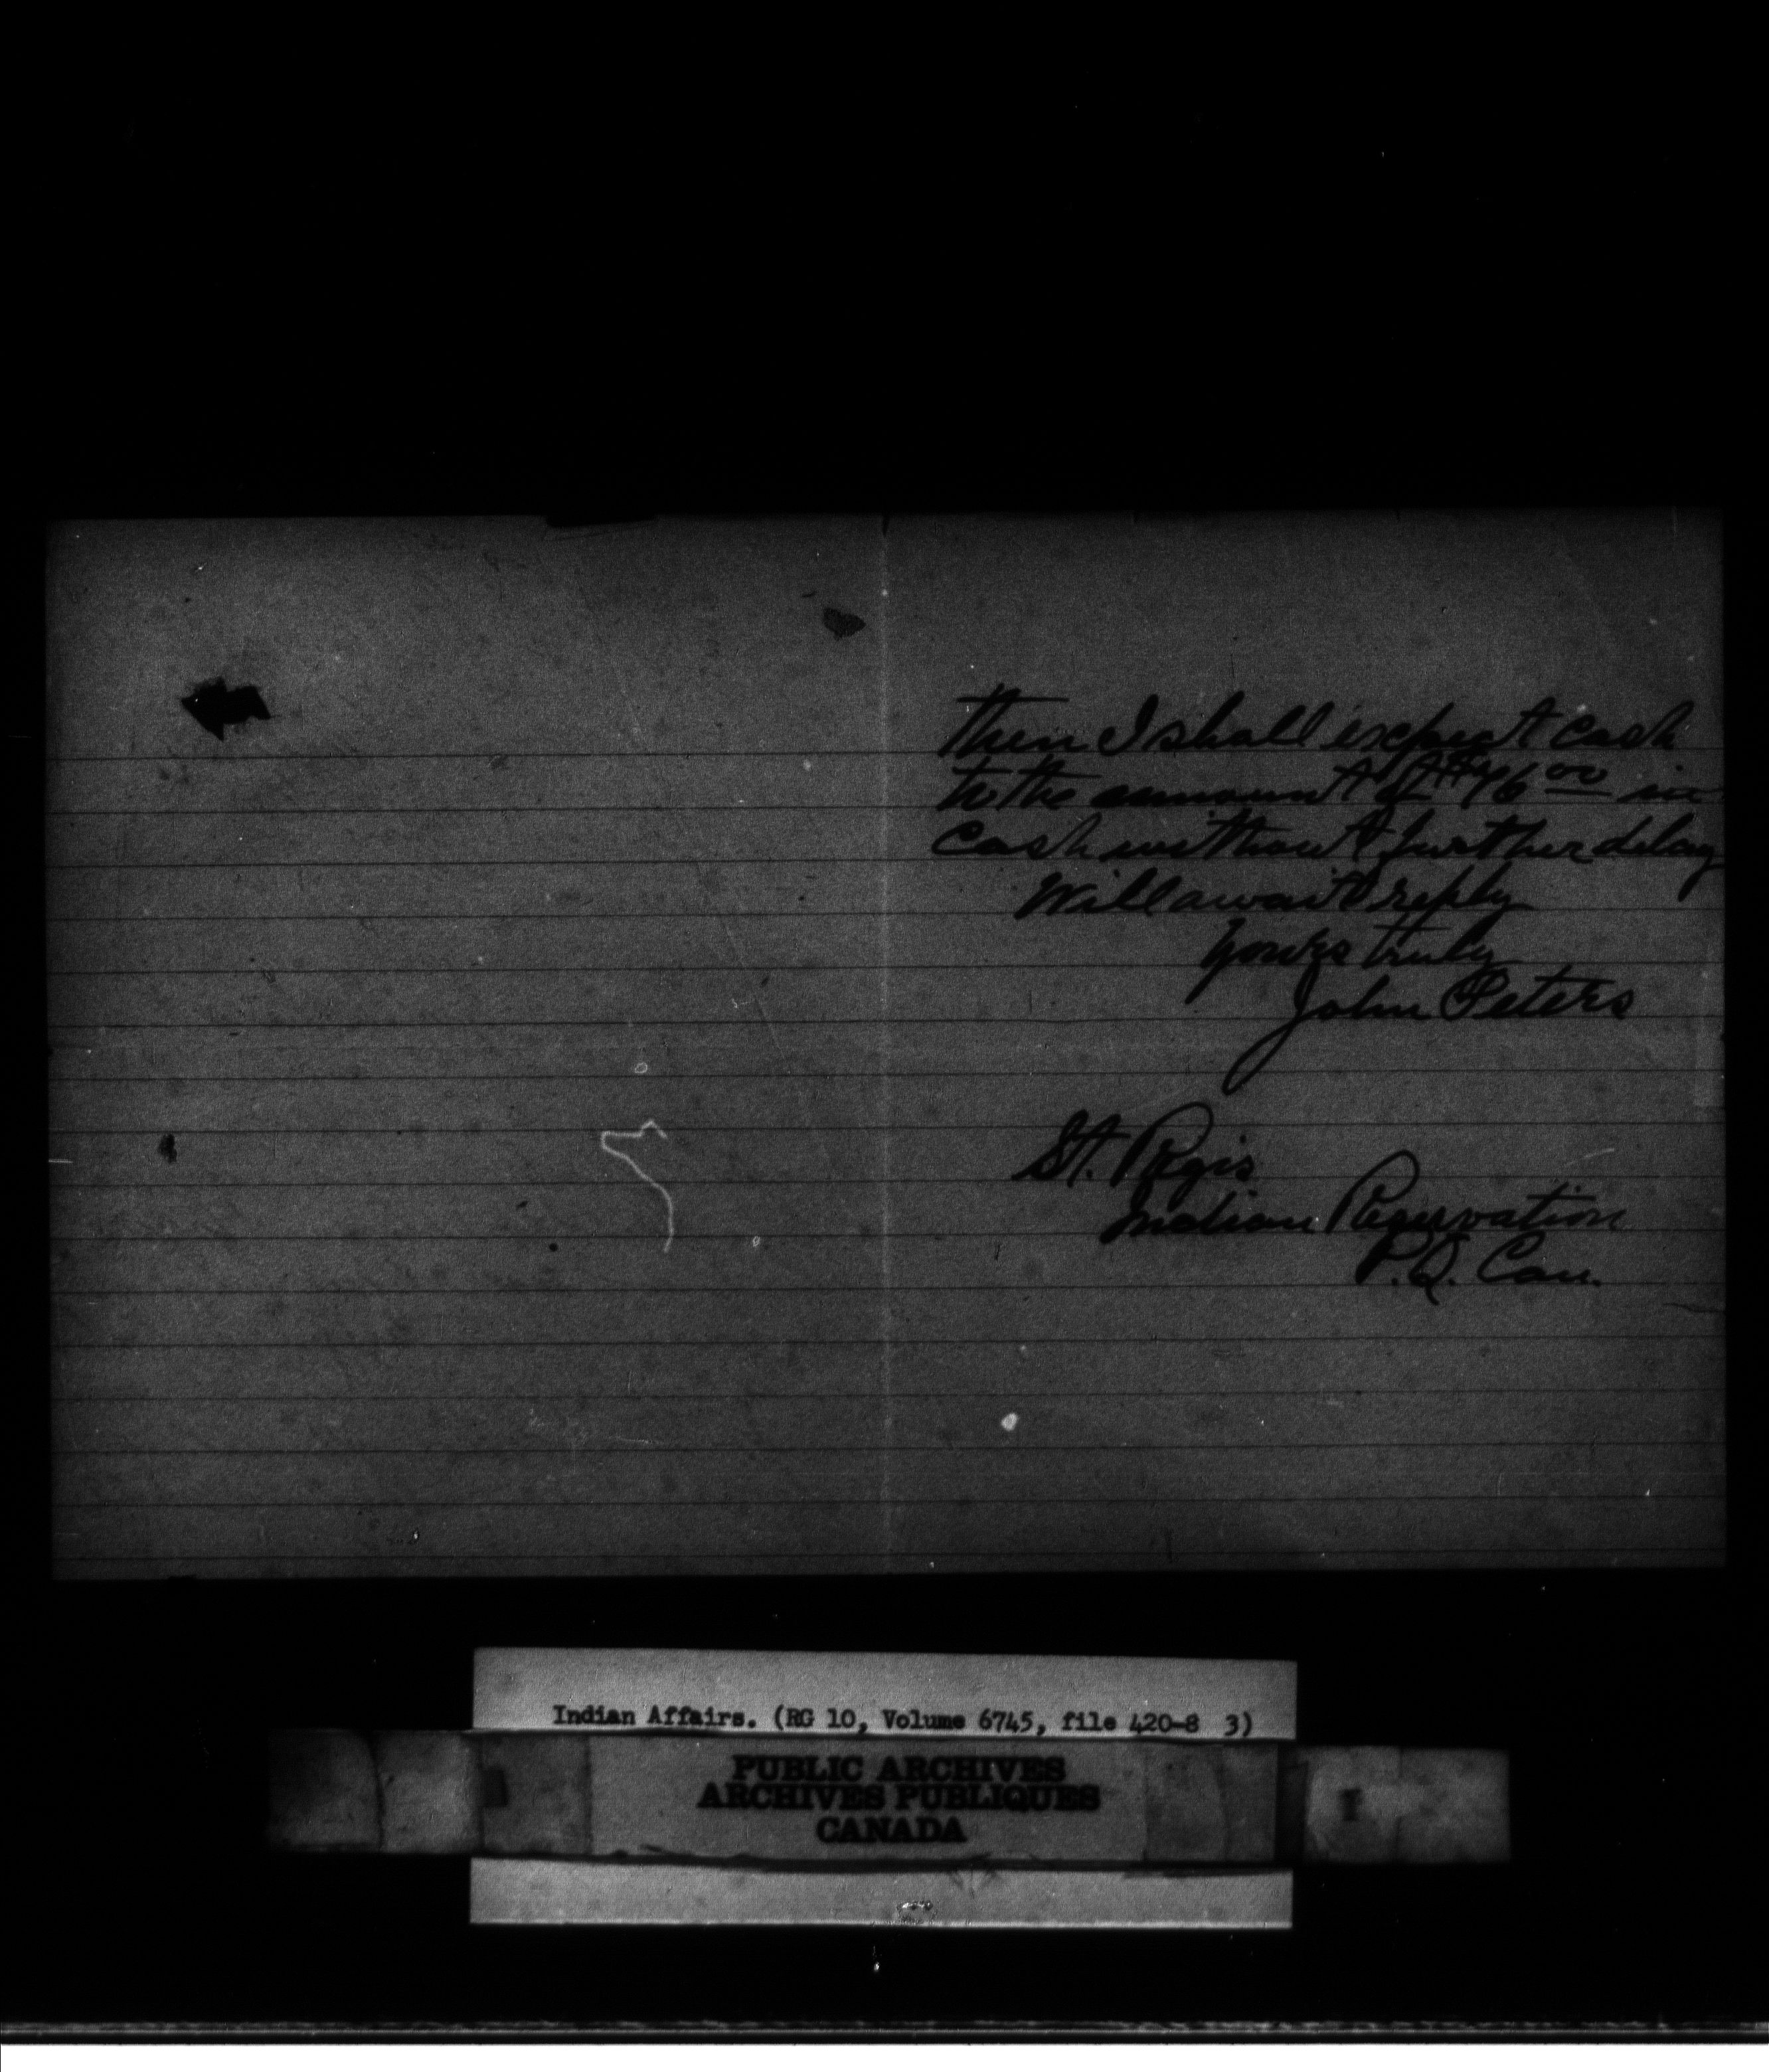 then I shall expect cash
to the ammount of $46 00 in
Cash without further delay
Will await reply
Yours truly
John Peters
St. Regis
Indian Reservation
P.Q. Can.
Indian Affairs. (RG 10, Volume 6745, file 420-8 3)
PUBLIC ARCHIVES
ARCHIVES PUBLIQUES
CANADA